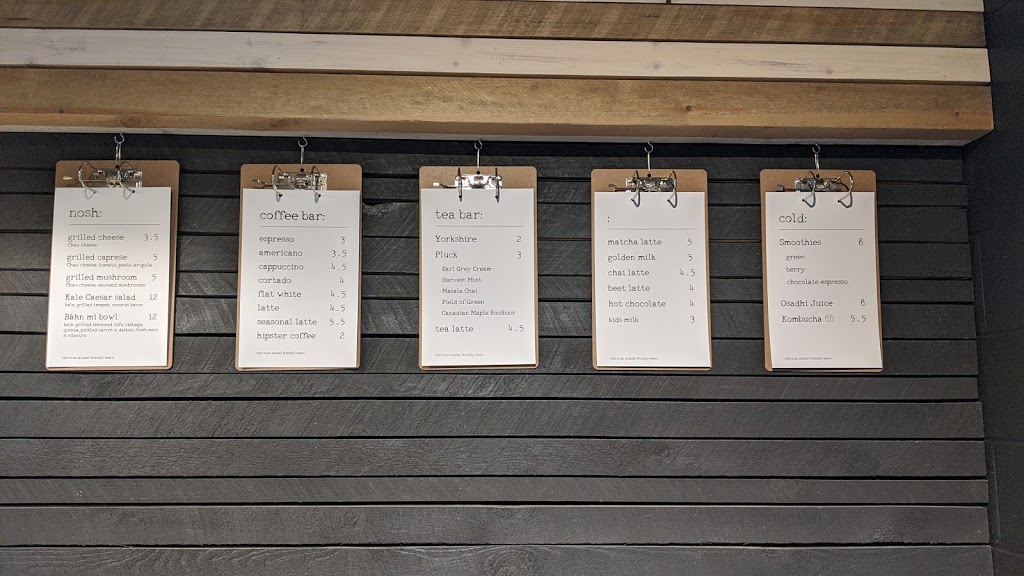 nosh:
grilled cheese 3.5
Chao cheese
grilled caprese 5
Chao cheese, tomato, pesto, arugula
grilled mushroom 5
Chao cheese, sauteed mushrooms
Kale Caesar salad 12
kale, grilled tempeh, coconut bacon
Bành mì bowl 12
kale, grilled seasoned tofu, cabbage,
quinoa, pickled carrot & daikon, fresh mint
& cilantro
coffee bar:
espresso 3
americano 3.5
cappuccino 4.5
cortado 4
flat white 4.5
latte 4.5
seasonal latte 5.5
hipster coffee 2
this is an animal friendly menu
tea bar:
Yorkshire 2
Pluck 3
Earl Grey Cream
Harvest Mint
Masala Chai
Field of Green
Canadian Maple Rooibos
tea latte 4.5
this is an animal friendly menu
:
matcha latte 5
golden milk 5
chai latte 4.5
beet latte 4
hot chocolate 4
kids milk 3
this is an animal friendly menu
cold:
Smoothies 8
green
berry
chocolate espresso
Osadhi Juice 8
Kombucha 5.5
this is an animal friendly menu